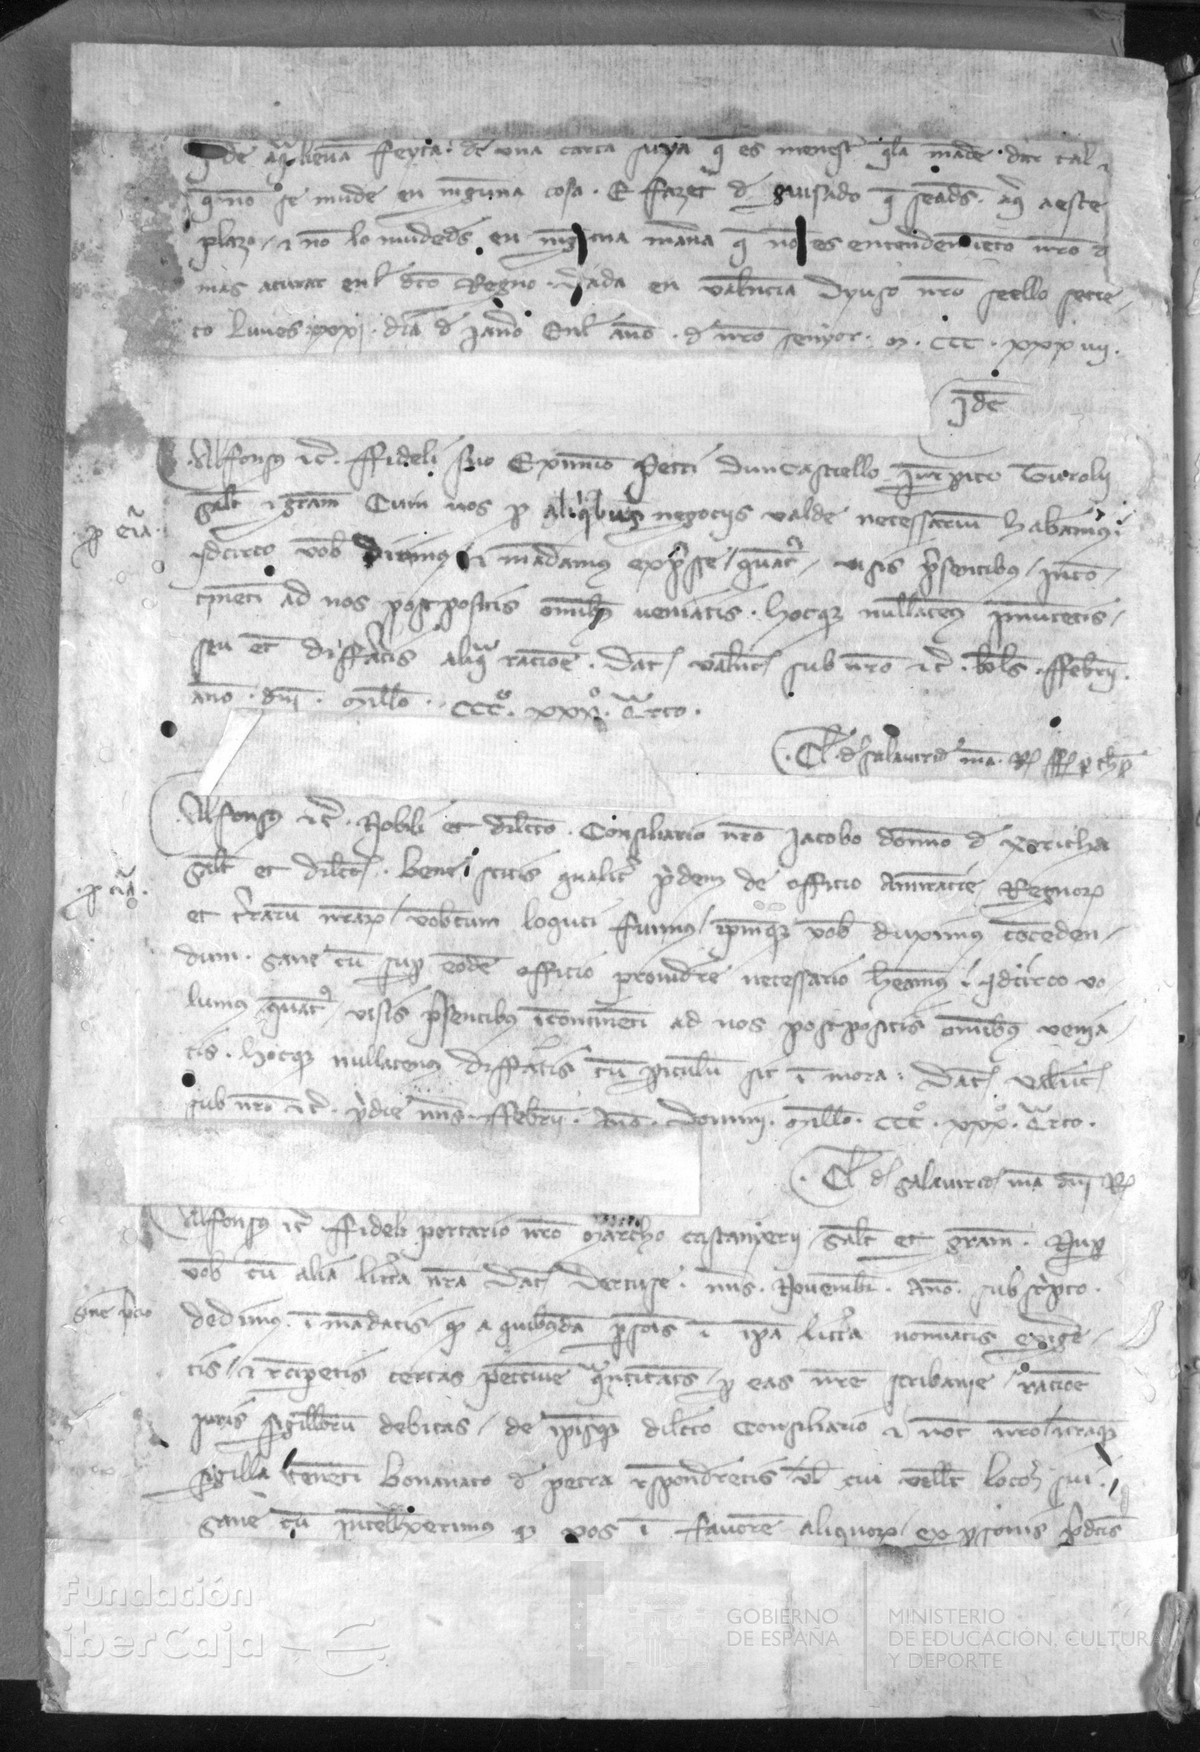 de aq̃ lieuã feyta · de una carta suya q̃ es menest̃ q̃la mãde · dar tal
q̃ no se mude en ninguna cosa · E ffazet d guisado q̃ seads̃ · aq̃ a este
plazo / ⁊ nõ lo mudeds̃ en mãna q̃ nõ es entendemiẽto nr̃o d
mas aturar enl dc̃o Regno · Dada en Valẽncia Dyuso nr̃o seello secre
to Lunes · xxxi · dia d Janero Enl anño · d nr̃o senyor · M · CCC · xxx iiij ·
Jdẽ
Alfonsꝰ ⁊c̃ · ffideli suo Eximino Petri Duncastiello Turolij
Salt̃ ⁊ gram̃ Cum nos p aliqͥbus negocijs valde necessarium habeamus
p cur̃a ·
Jdcirco vob̃ dicimus ⁊ mãdamus exp̃sse / quat̃ / visis p̃sentibus / incõ
tinẽti ad nos postpositis om̃ibꝫ veniatis · hocqꝫ nullatenꝰ ĩmutetis /
seu et diffãtis aliqͣ racione · Dat̃ Valñt sub nr̃o ⁊c̃ · kls̃ · ffebrͬ ·
año · dnĩ · Millo · CCCº · xxxº · Qͣrto ·
· Cl̃ · d Salauirͩ mã · R̃
Alfonsꝰ ⁊c̃ · Nobili et dilc̃to · Consiliario nr̃o Jacobo domino d Xericha
Salt̃ et dilc̃t · bene scitis qualit̃ p̃dem de officio Amiratie Regnorꝝ
· p cur̃a ·
et t̃rarũ nr̃arꝝ / vobiscum loquti fuimus / ip̃mqꝫ vob̃ duximus cõceden
dum · Sane cũ sup eodẽ officio prouidẽ necessario hẽamus · Jdcirco vo
lumus quat̃ visis p̃sentibus ĩcontinẽti ad nos postpositis om̃ibꝫ venia
tis · hocqꝫ nullatenus diffãtis cũ p̃iculũ sit ĩ mora · Dat̃ Valñt
sub nr̃o ⁊c̃ · p̃die nñs · ffebrij · Año · Domini · Millo · CCCº · xxxº · Qͣrto ·
· Cl̃ d Salauird mã dnĩ R̃
Alfonsꝰ ⁊c̃ ffideli portario nr̃o Marcho Castanyerij Salt̃ et gram̃ · Nup
vob̃ cũ alia litt̃a nr̃a Dat̃ Dertuse · nñs · Nouembͬ · Año · subsc̃pto ·
dedimus ĩ mãdatis / qͩ a quibusdã p̃sonis ĩ ip̃a litt̃a nominatis exige
tis / ⁊ recip̃etis certas peccunie qͣntitates / p eas nr̃e scribanie / racione
juris sigillorũ debitas / de ip̃isqꝫ dilc̃to Consiliario ⁊ not̃ nr̃o / nr̃aqꝫ
sigilla tenẽti bonanato d petra rspondretis vl̃ cui vellet loco sui ·
Sane cũ intellexerimus qͩ vos ĩ fauorẽ aliquorꝝ / ex p̃sonis p̃dc̃is
Fundación
iberCaja
GOBIERNO
DE ESPAÑA
MINISTERIO
DE EDUCACIÓN, CULTURA
Y DEPORTE